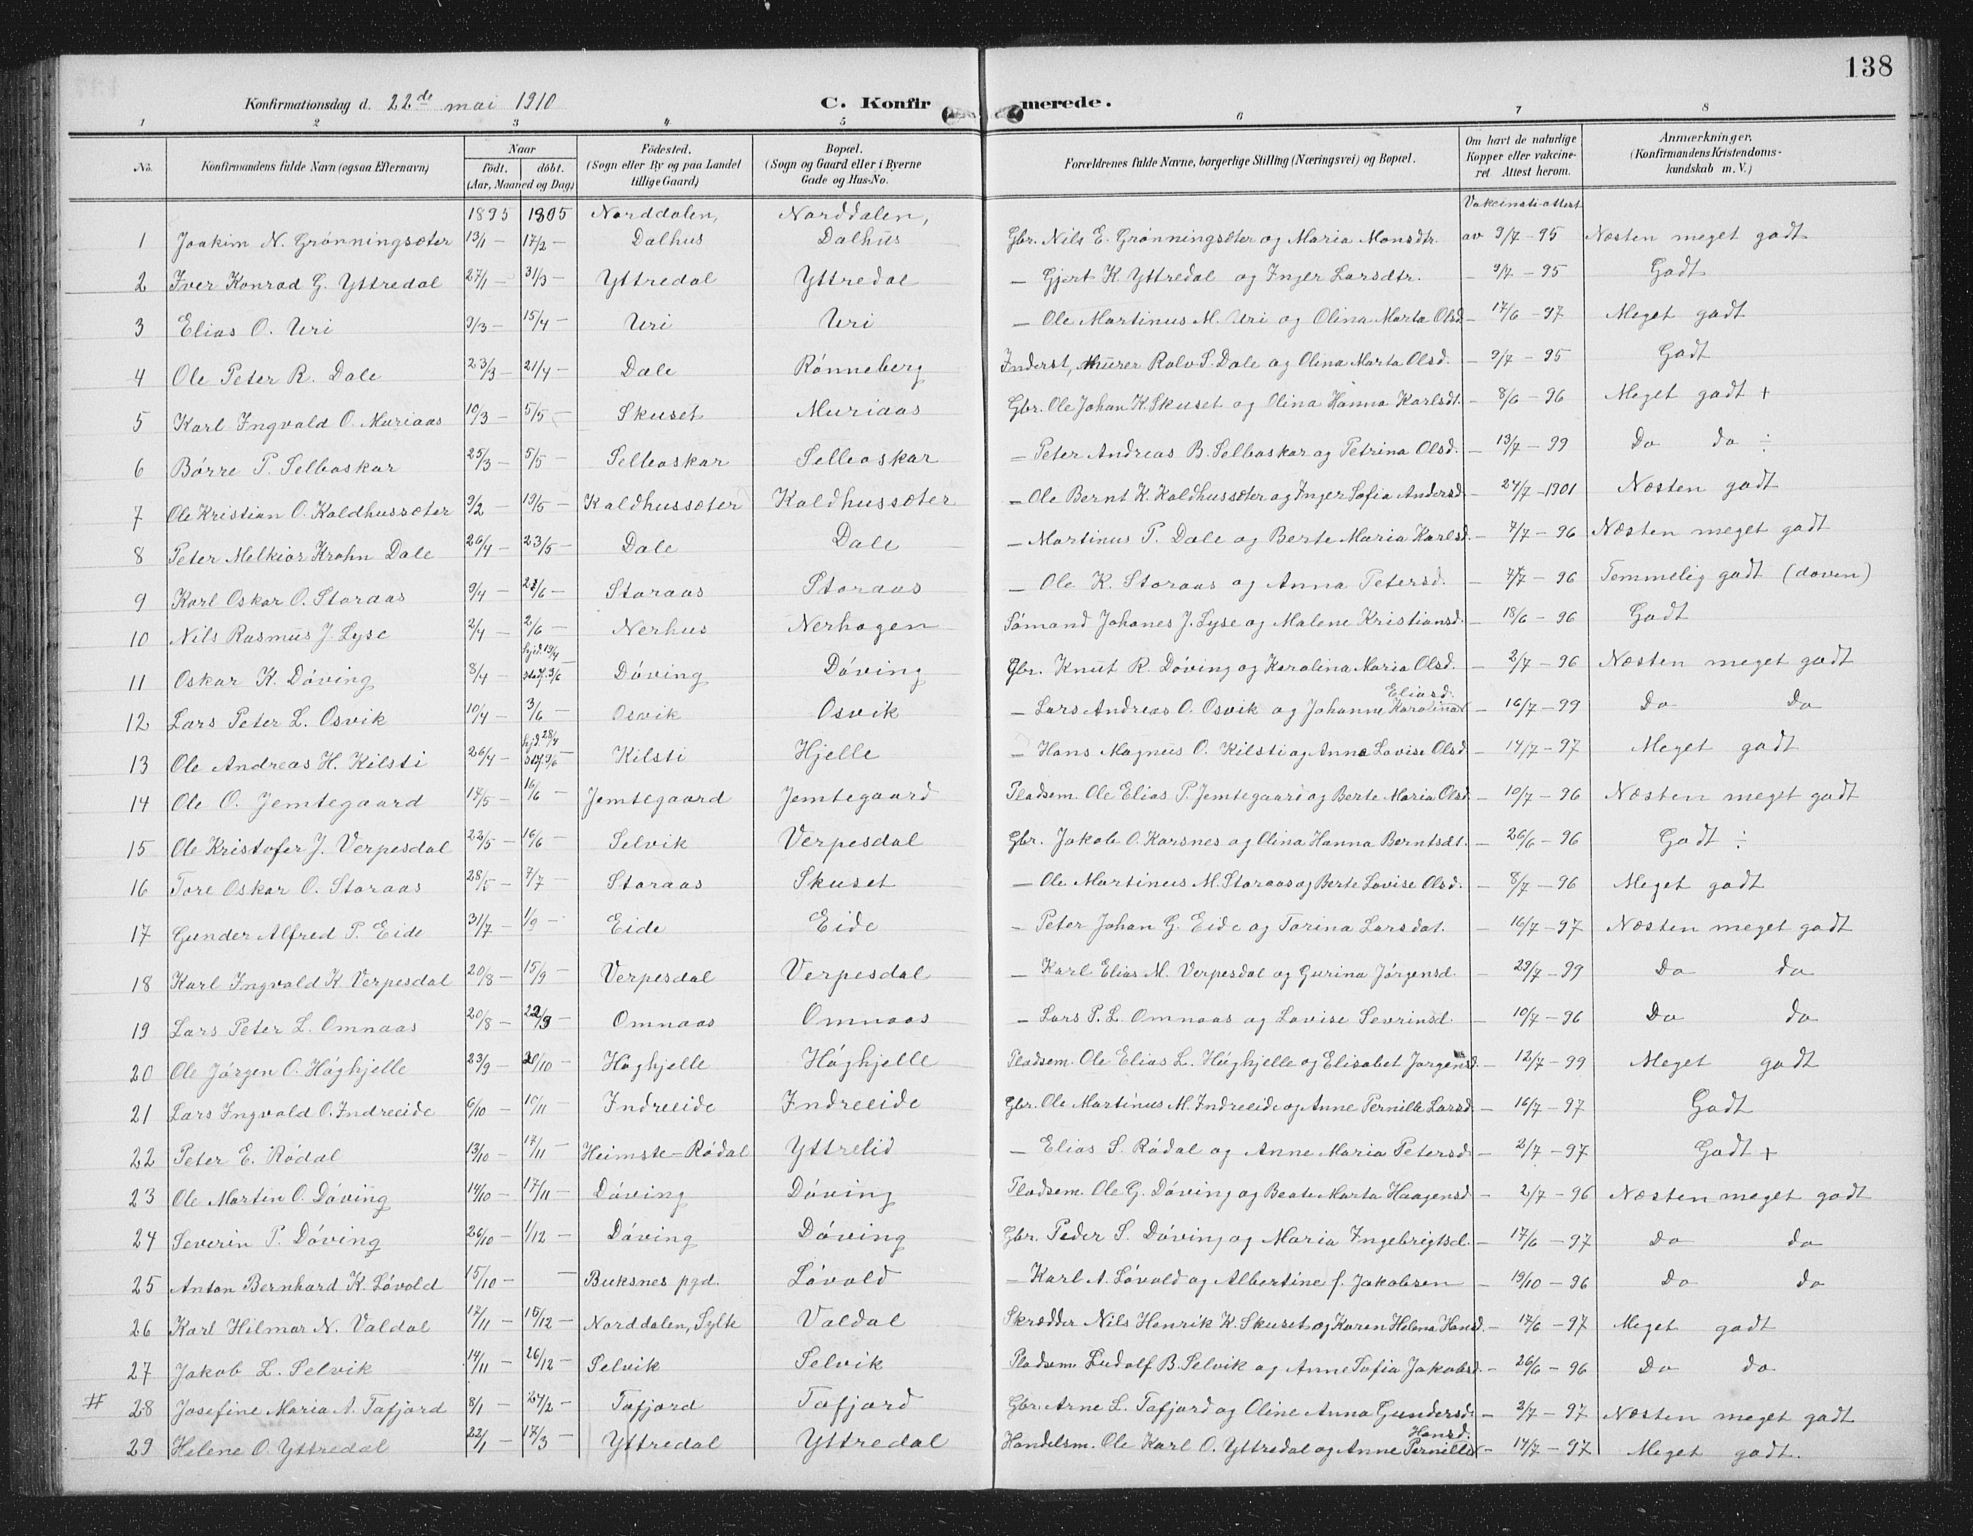 138
Konfirmationsdag d. 22de mai 1910 C. Konfirmerede.
1 2 3 4 5 6 7 8
No. Konfirmandens fulde Navn (ogsaa Efternavn) Naar født. døbt. (Aar, Maaned og Dag) Fødested. (Sogn eller By og paa Landet tillige Gaard) Bopæl. (Sogn og Gaard eller i Byerne Gade og Hus-No. Forældrenes fulde Navne, borgerlige Stilling (Næringsvei) og Bopæl. Om havt de naturlige Kopper eller vakcineret Attest herom. Anmærkninger. (Konfirmandens Kristendomskundskab m. V.)
1895 1895 Norddalen, Norddalen, Vakcinati-attest
1 Joakim N. Grønningsæter 13/1 — 17/2 — Dalhus Dalhus Gbr. Nils E. Grønningsæter og Maria Monsdtr. av 9/7 - 95 Næsten meget godt
2 Iver Konrad G. Yttredal 27/1 — 31/3 — Yttredal Yttredal — Gjert K. Yttredal og Inger Larsdtr. — 9/7 - 95 Godt
3 Elias O. Uri 9/3 — 15/4 — Uri Uri — Ole Martinus M. Uri og Olina Marta Olsd — 17/6 - 97 Meget godt
4 Ole Peter R. Dale 23/3 — 21/4 — Dale Rønneberg Inderst, Murer Rolv S. Dale og Olina Marta Olsd. — 9/7 - 95 Godt
5 Karl Ingvald O. Muriaas 10/3 — 5/5 — Skuset Muriaas Gbr. Ole Johan K. Skuset og Olina Hanna Karlsdt. — 8/6 - 96 Meget godt +
6 Børre P. Selboskar 25/3 — 5/5 — Selboskar Selboskar — Peter Andreas B. Selboskar og Petrina Olsd. — 13/7 - 99 Do do ÷
7 Ole Kristian O. Kaldhussæter 9/2 — 19/5 — Kaldhussæter Kaldhussæter — Ole Bernt K. Kaldhussæter og Inger Sofia Andersd — 24/7 - 1901 Næsten godt
8 Peter Melkior Krohn Dale 26/4 — 23/5 — Dale Dale — Martinus P. Dale og Berte Maria Karlsd. — 7/7 - 96 Næsten meget godt
9 Karl Oskar O. Storaas 9/4 — /6 — Storaas Storaas — Ole K. Storaas og Anna Petersd. — 7/7 - 96 Temmelig godt (doven)
10 Nils Rasmus J. Lyse 2/4 — 2/6 — Nerhus Nerhagen Sømand Johanes J. Lyse og Malene Kristiansd. — 18/6 - 96 Godt
11 Oskar K. Døving 8/4 — hjd. 19/4 stad. 3/6 Døving Døving Gbr. Knut R. Døving og Karolina Maria Olsd. — 2/7 - 96 Næsten meget godt
12 Lars Peter L. Osvik 10/4 — 3/6 — Osvik Osvik — Lars Andreas O. Osvik og Johanne Karolina Eliasd. — 16/7 - 99 Do Do
13 Ole Andreas H. Kilsti 26/4 — hjd. 28/4 stad. 9/6 — Kilsti Hjelle — Hans Magnus O. Kilsti og Anne Lovise Olsd — 14/7 - 97 Meget godt
14 Ole O. Jemtegaard 14/5 — 16/6 — Jemtegaard Jemtegaard Pladsem. Ole Elias P. Jemtegaard og Berte Maria Olsd — 10/7 - 96 Næsten meget godt
15 Ole Kristofer J. Verpesdal 22/5 — 16/6 — Selvik Verpesdal Gbr. Jakob O. Korsnes og Olina Hanna Berntsdt. — 26/6 - 96 Godt ÷
16 Tore Oskar O. Storaas 28/5 — 7/7 — Storaas Skuset — Ole Martinus M. Storaas og Berte Lovise Olsd. — 8/7 - 96 Meget godt
17 Gunder Alfred P. Eide 31/7 — 1/9 — Eide Eide — Peter Johan G. Eide og Torina Larsdat. — 16/7 - 97 Næsten meget godt
18 Karl Ingvald K. Verpesdal 20/8 — 15/9 — Verpesdal Verpesdal — Karl Elias M. Verpesdal og Gurina Jørgensd. — 29/7 - 99 Do do
19 Lars Peter L. Omnaas 20/8 — 22/9 — Omnaas Omnaas — Lars P. L. Omnaas og Lovise Sevrinsd. — 10/7 - 96 Do do
20 Ole Jørgen O. Høghjelle 23/9 — 20/10 — Høghjelle Høghjelle Pladsem. Ole Elias L. Høghjelle og Elisabet Jørgensd. — 12/7 - 99 Meget godt
21 Lars Ingvald O. Indreeide 6/10 — 10/11 — Indreeide Indreeide Gbr. Ole Martinus M. Indreeide og Anne Pernille Larsd. — 16/7 - 97 Godt
22 Peter E. Rødal 13/10 — 17/11 — Heimste-Rødal Yttrelid — Elias S. Rødal og Anne Maria Petersd. — 2/7 - 97 Godt +
23 Ole Martin O. Døving 14/10 — 17/11 — Døving Døving Pladsem. Ole G. Døving og Beate Marta Haagensd. — 2/7 - 96 Næsten meget godt
24 Severin P. Døving 26/10 — 1/12 — Døving Døving Gbr. Peder S. Døving og Maria Ingebrigtsd. — 17/6 - 97 Do do
25 Anton Bernhard K. Løvold 15/10 — — Buksnes pgd. Løvold — Karl A. Løvold og Albertine f. Jakobsen — 19/10 - 96 Do do
26 Karl Hilmar N. Valdal 17/11 — 15/12 — Norddalen, Sylte Valdal Skrædder Nils Henrik K. Skuset og Karen Helena Hansd. — 17/6 - 97 Meget godt
27 Jakob L. Selvik 14/11 — 26/12 — Selvik Selvik Pladsem. Ludolf B. Selvik og Anne Sofia Jakobsd. — 26/6 - 96 Do do
# 28 Josefine Maria A. Tafjord 8/1 — 24/2 — Tafjord Tafjord Gbr. Arne L. Tafjord og Oline Anna Gundersd. — 2/7 - 97 Næsten meget godt
29 Helene O. Yttredal 22/1 — 17/3 — Yttredal Yttredal Handelsm. Ole Karl O. Yttredal og Anne Pernille Hansd. — 14/7 - 97 Meget godt.